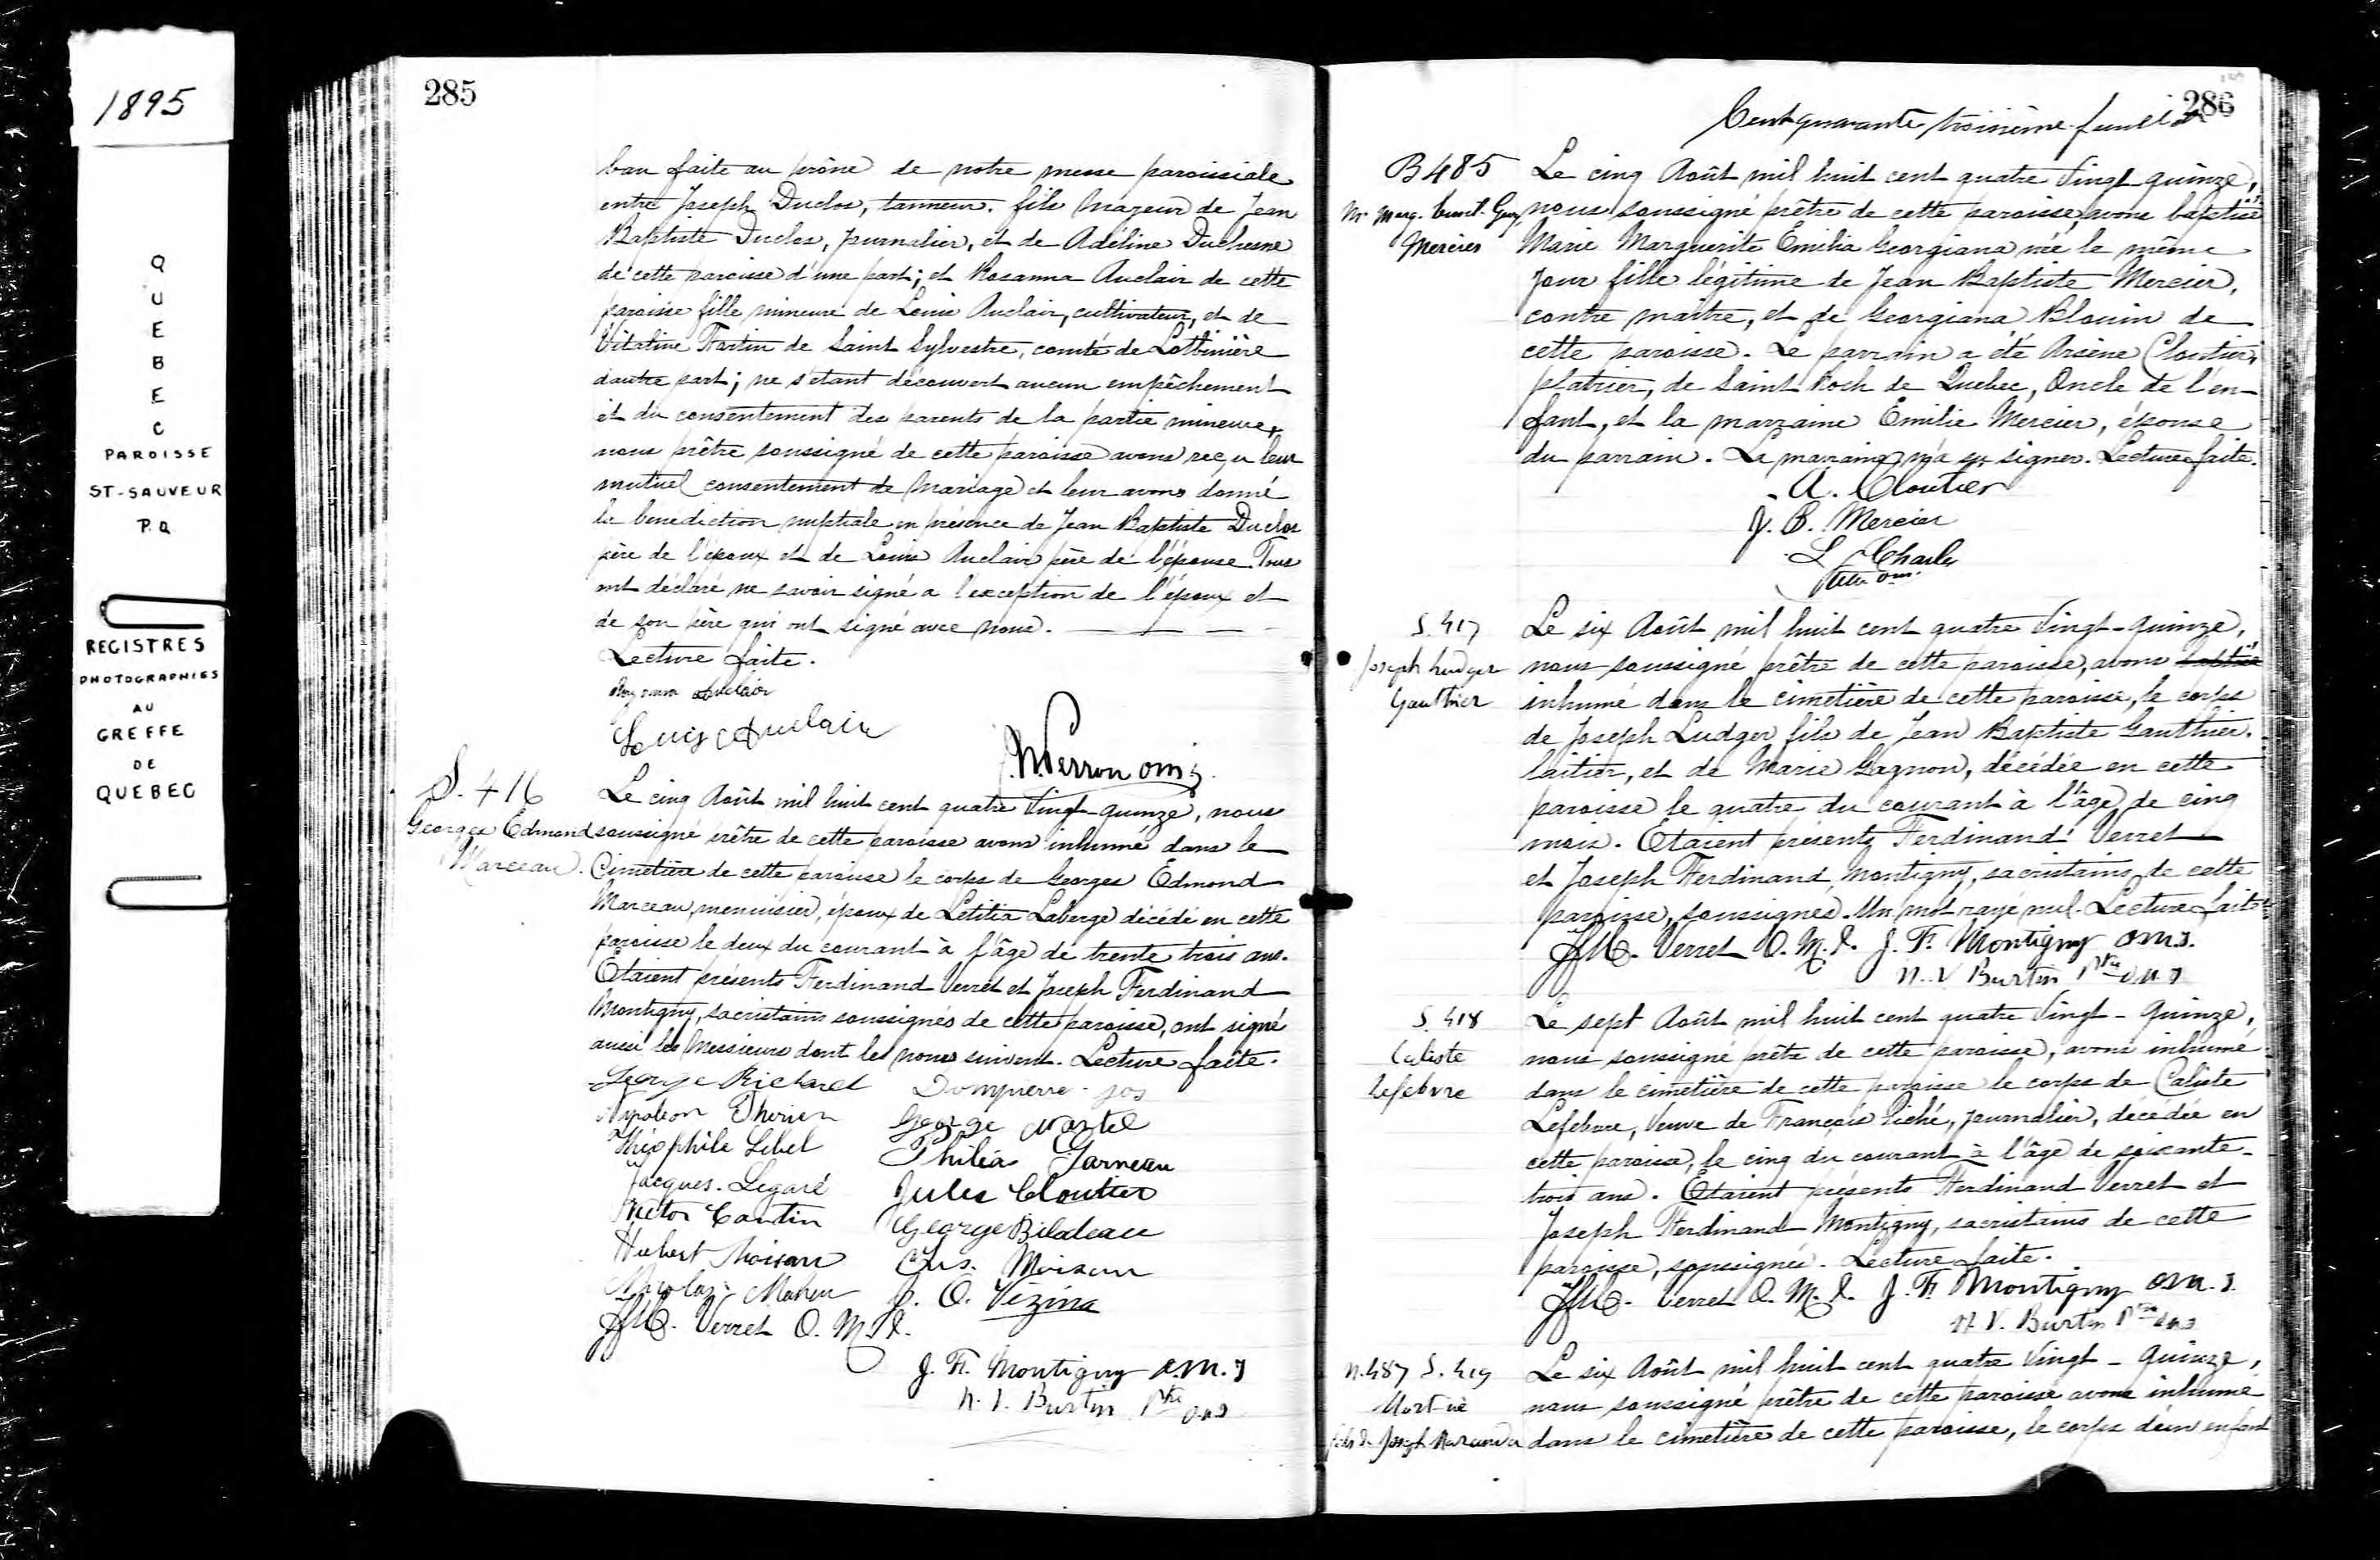 1895
Q
U
E
B
E
C
PAROISSE
ST-SAUVEUR
P.Q
REGISTRES
PHOTOGRAPHIES
AU
GREFFE
DE
QUEBEC
285
ban faite au prône de notre messe paroissiale
entre Joseph Duclos, tanneur, fils majeur de Jean
Baptiste Duclos, journalier, et de Adéline Duchesne
de cette paroisse d'une part; et Rosanna Auclair de cette
paroisse fille mineure de Louis Auclair, cultivateur, et de
Vitaline Fortin de Saint Sylvestre, comté de Lotbinière
d'autre part; ne s'etant découvert aucun empêchement
et du consentement des parents de la partie mineure,
nous prêtre soussigné de cette paroisse avons reçu leur
mutuel consentement de mariage et leur avons donné
la bénédiction nuptiale en présence de Jean Baptiste Duclos
père de l'époux et de Louis Auclair père de l'épouse. Tous
ont déclaré ne savoir signé a l'exception de l'époux et
de son père qui ont signé avec nous.
Lecture faite.
Auclair
Louis Auclair
Perron omi
S. 416
Georges Edmond
Marceau.
Le cinq Août mil huit cent quatre Vingt-quinze, nous
soussigné prêtre de cette paroisse avons inhumé dans le
Cimetière de cette paroisse le corps de Georges Edmond
Marceau, menuisier, époux de Letitia Laberge décédé en cette
paroisse le deux du courant à l'âge de trente trois ans.
Etaient présents Ferdinand Verret et Joseph Ferdinand
Montigny, sacristains soussignés de cette paroisse, ont signé
aussi les Messieurs dont les noms suivent. Lecture faite.
George Richard Dompierre jos
Napoléon Therien George Martel
Théophile Lebel Philéas Garneau
Jacques Legaré Jules Cloutier
Victor Cantin George Bilodeau
Hubert Moisan Chs. Moisan
Nicolas Maheu J. O. Vézina
Verret O.M.I.
J. F. Montigny O.M.I
N. V. Burtin Ptre omi
286
Cent quarante troisième feuillet
B485
Mercier
Le cinq Août mil huit cent quatre Vingt-quinze,
nous soussigné prêtre de cette paroisse, avons baptisé
Marie Marguerite Emilia Georgiana née le même
jour fille légitime de Jean Baptiste Mercier,
contre maître, et de Georgiana Blouin de
cette paroisse. Le parrain a été Arsène Cloutier,
platrier, de Saint Roch de Quebec, Oncle de l'en-
fant, et la marraine Emilie Mercier, épouse
du parrain. La marraine n'a su signer. Lecture faite.
A. Cloutier
J. B. Mercier
Charles
ptre omi
S. 417
Joseph Ludger
Gauthier
Le six Août mil huit cent quatre Vingt-quinze,
nous soussigné prêtre de cette paroisse, avons baptisé
inhumé dans le cimetière de cette paroisse, le corps
de Joseph Ludger fils de Jean Baptiste Gauthier,
laitier, et de Marie Gagnon, décédée en cette
paroisse le quatre du courant à l'âge de cinq
mois. Etaient presents Ferdinand Verret
et Joseph Ferdinand Montigny, sacristains de cette
paroisse, soussignés. Un mot rayé nul. Lecture faite
Verret O.M.I. J. F. Montigny OM.I.
N. V Burtin Ptre O.M.I
S. 418
Caliste
Lefebvre
Le sept Août mil huit cent quatre Vingt-Quinze,
nous soussigné prêtre de cette paroisse, avons inhumé
dans le cimetière de cette paroisse le corps de Caliste
Lefebvre, Veuve de François Piché, journalier, décédée en
cette paroisse, le cinq du courant à l'âge de soixante-
trois ans. Etaient présents Ferdinand Verret et
Joseph Ferdinand Montigny, sacristains de cette
paroisse, soussignés. Lecture faite.
Verret O.M.I. J. F. Montigny OM.I.
N. V. Burtin Ptre omi
N. 487 S. 419
Mort-né
fils de Joseph
Le six Août mil huit cent quatre Vingt-Quinze,
nous soussigné prêtre de cette paroisse avons inhumé
dans le cimetière de cette paroisse, le corps d'un enfant